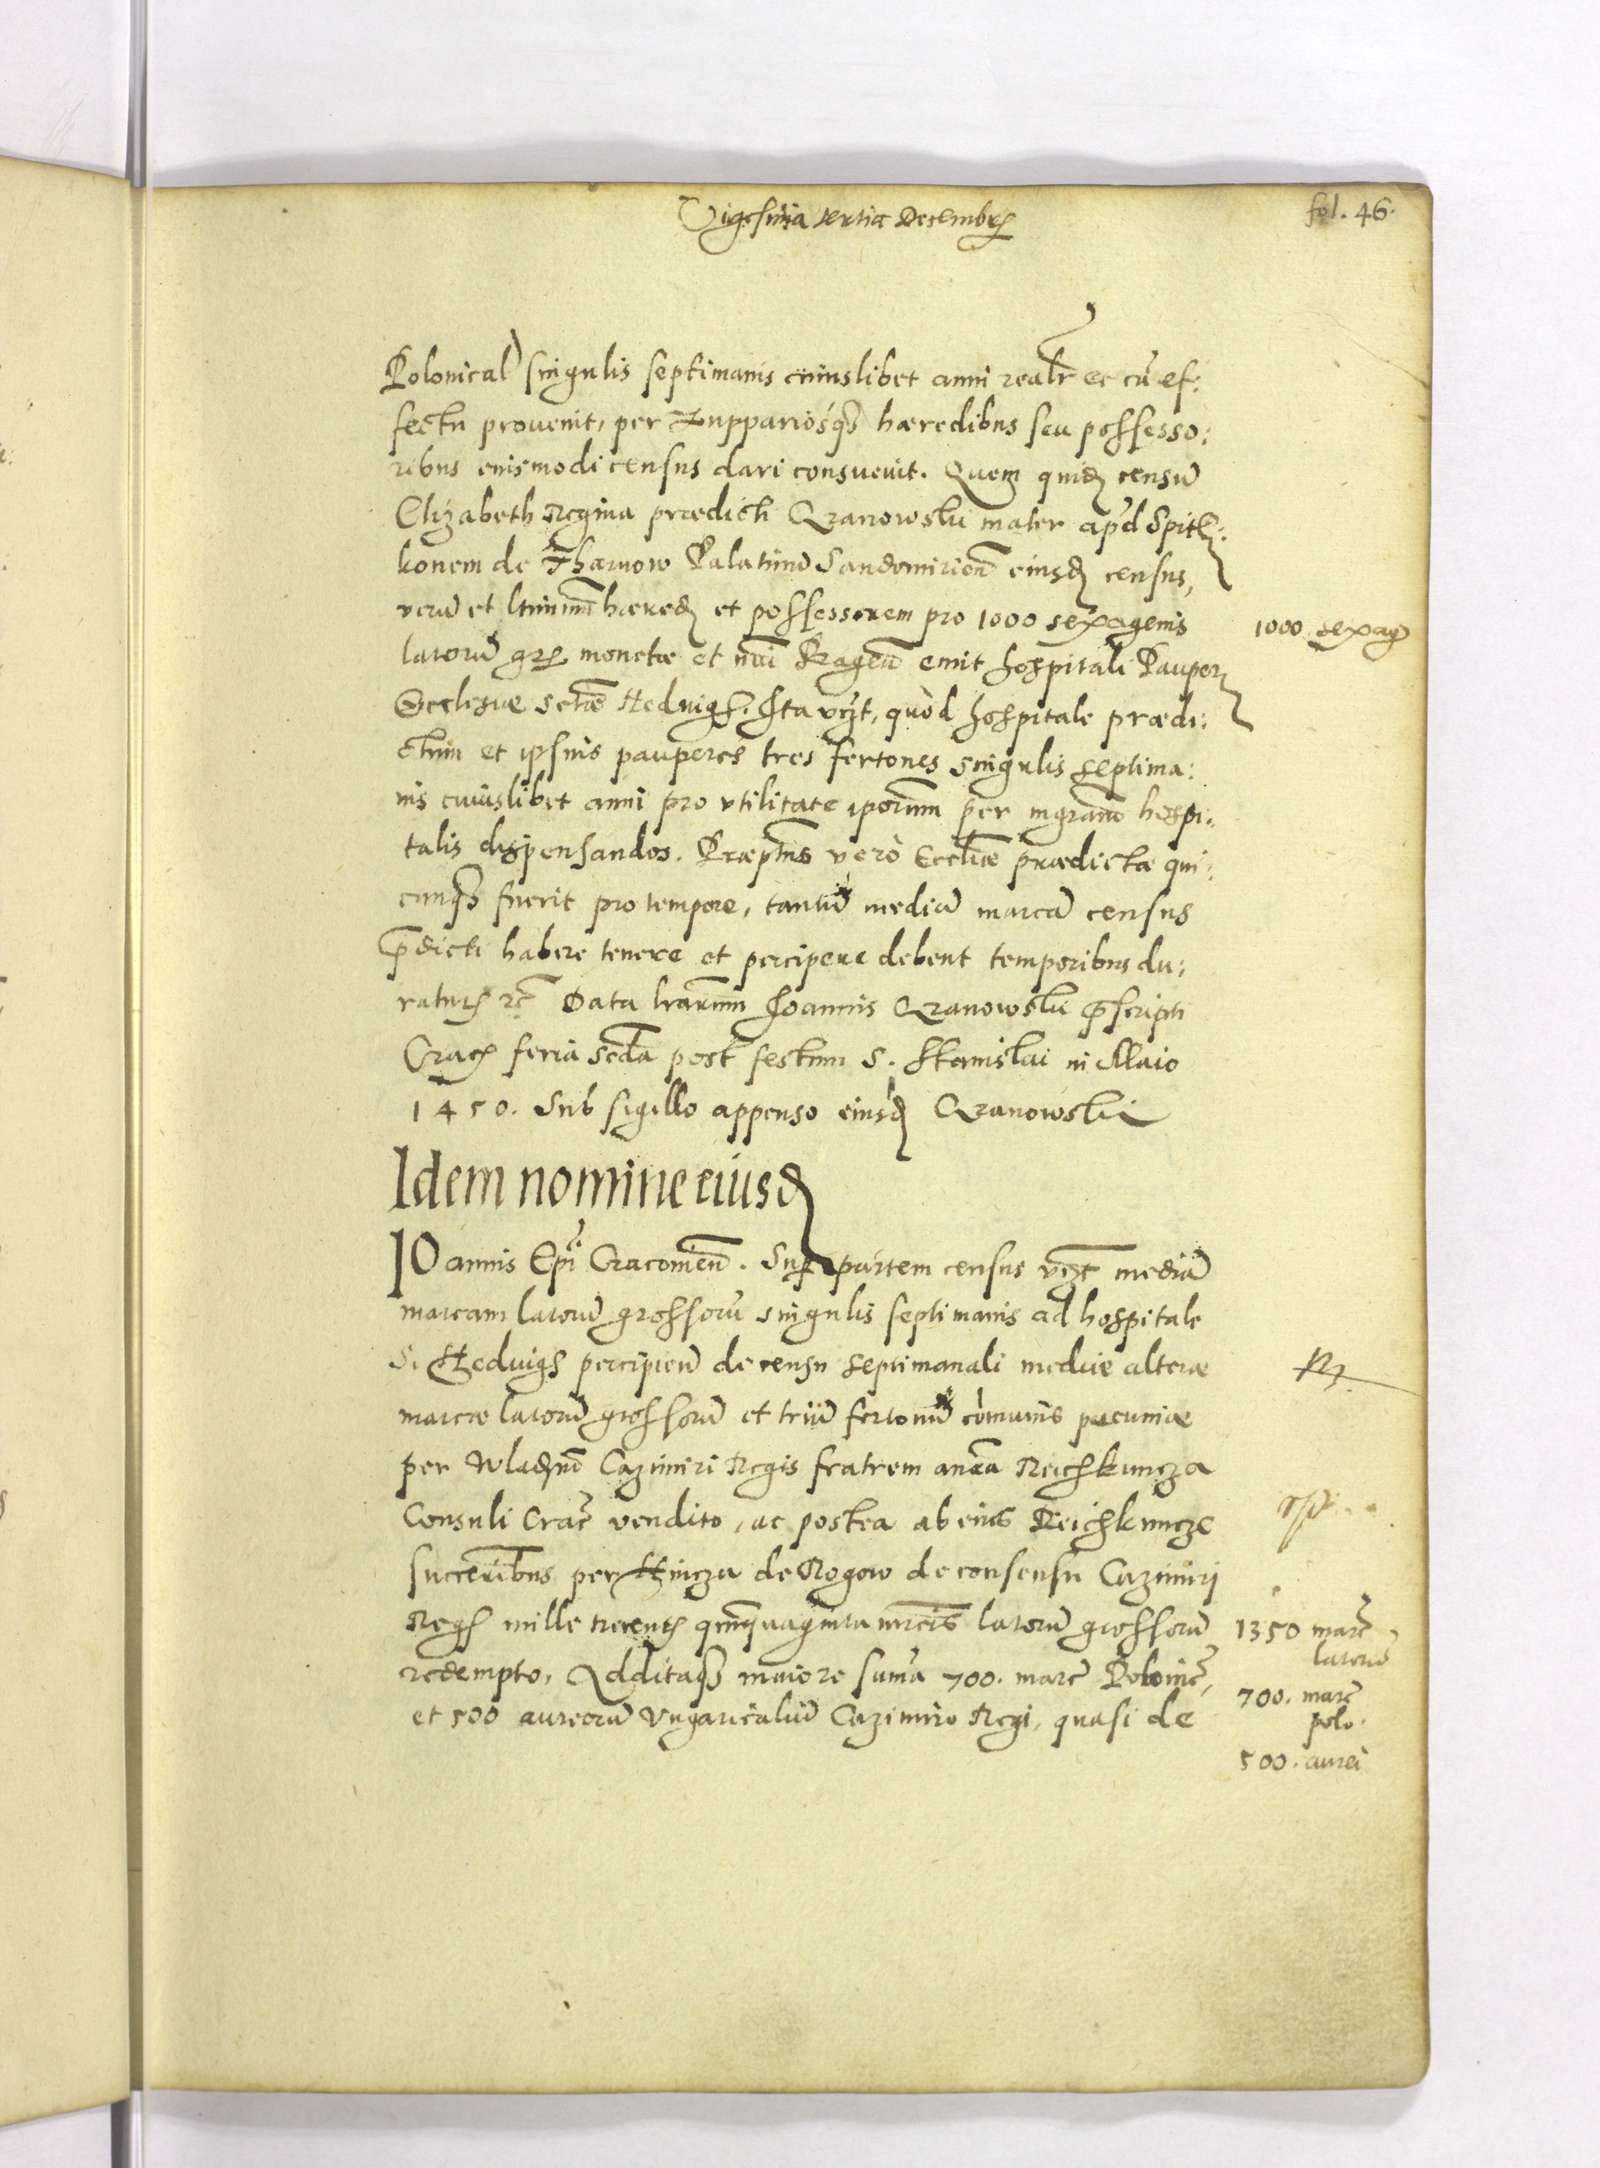 Vigesima tertia Decembris
fol. 46.
Polonical singulis septimanis cuiuslibet anni realr̄ ec cū ef:
fectu prouenit, per Zupparios q̃ hæredibus seu possesso:
ribus eiusmodi census dari consueuit. Quem quidem censū
Elizabeth Regina prædicti Cranowskii mater apud Spitk:
konem de Tharnow Palatinū Sandomirien̄ eiusdem census,
verū et ltimum hæredem et possessorem pro 1000 sexagenis
1000 sexag
latorū gr̄ monetæ et nr̄i Pragen̄ emit hospitali Pauper
Ecclesiæ sctæ Heduigis. Ita vz̄t, quòd hospitale prædi:
ctum et ipsius pauperes tres fertones singulis septima:
nis cuiuslibet anni pro vtilitate ip̄orum per mgram̄ hospi:
talis dispensandos. Præptus verò Eccl̄iæ prædictæ qui:
cunq̃ fuerit pro tempore, tantū mediā marcā census
p̄dicti habere tenere et percipere debent temporibus du:
raturis rc̄ Data lrārum Joannis Cranowskii p̄scripti
Crac̄ feria scd̄a post festum S. Stanislai in Maio
1450. Sub sigillo appenso eiusdem Cranowskii
Idem nomine eiusdem
IOannis Ep̄i Cracouien̄. Super partem census vz̄t mediā
marcam latorū grossorū singulis septimanis ad hospitale
S. Heduigis percipien̄ de censu septimanali mediæ alteræ
marcæ latorū grossorū et triū fertonū cōmunis pecuniæ
per Wladz̄m Cazimiri Regis fratrem Reichkuncza
Consuli Crac̄ vendito, ac postea ab eius Reichkuncze
succerībus per Hincza de Rogow de consensu Cazimiri
Regis mille trecentis quinquaginta mr̄cis latorū grossorū
1350 marc̄
latorū
redempto, Additaq̃ maiore sum̄a 700. marc̄ Polonic̄,
700. marc̄
polo.
et 500 aureorū Vngaricaliū Cazimiro Regi, quasi de
500. aurei